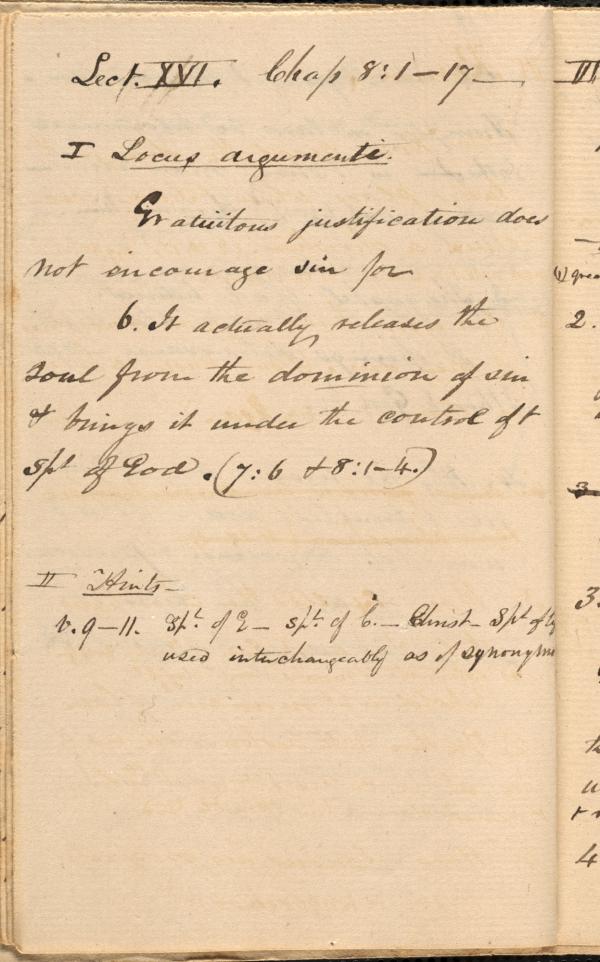 Lect. XVI. Chap 8:1–17–
I Locus argumenti.
Gratuitous justification does
not encourage sin for
6. It actually releases the
soul from the dominion of sin
& brings it under the control of t
Spt of God. (7:6 & 8:1–4.)
II Hints–
v. 9–11. Spt. of G – Spt. of C. – Christ – Spt of
used interchangeably as if synonyms
III
(1)
2.
3
3.
4